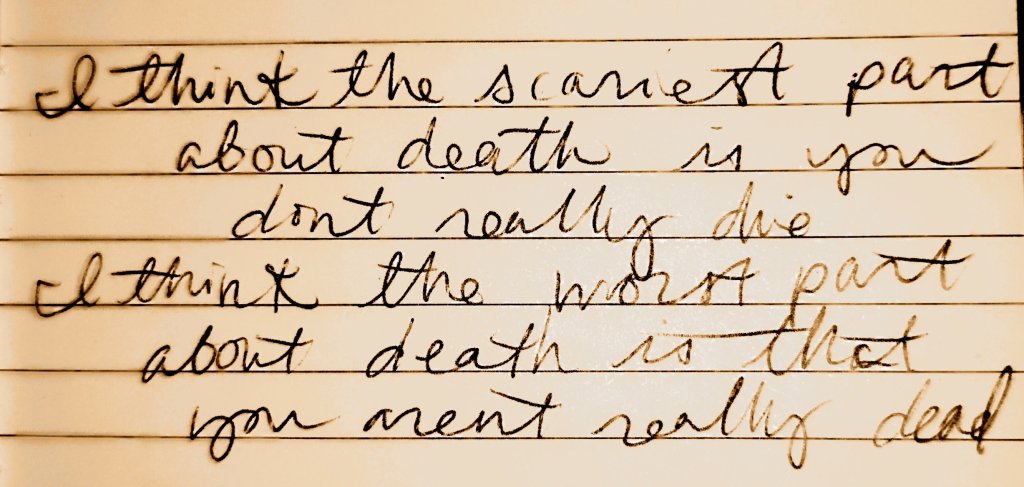 I think the scariest part
about death is you
dont really die
I think the worst part
about death is that
you arent really dead